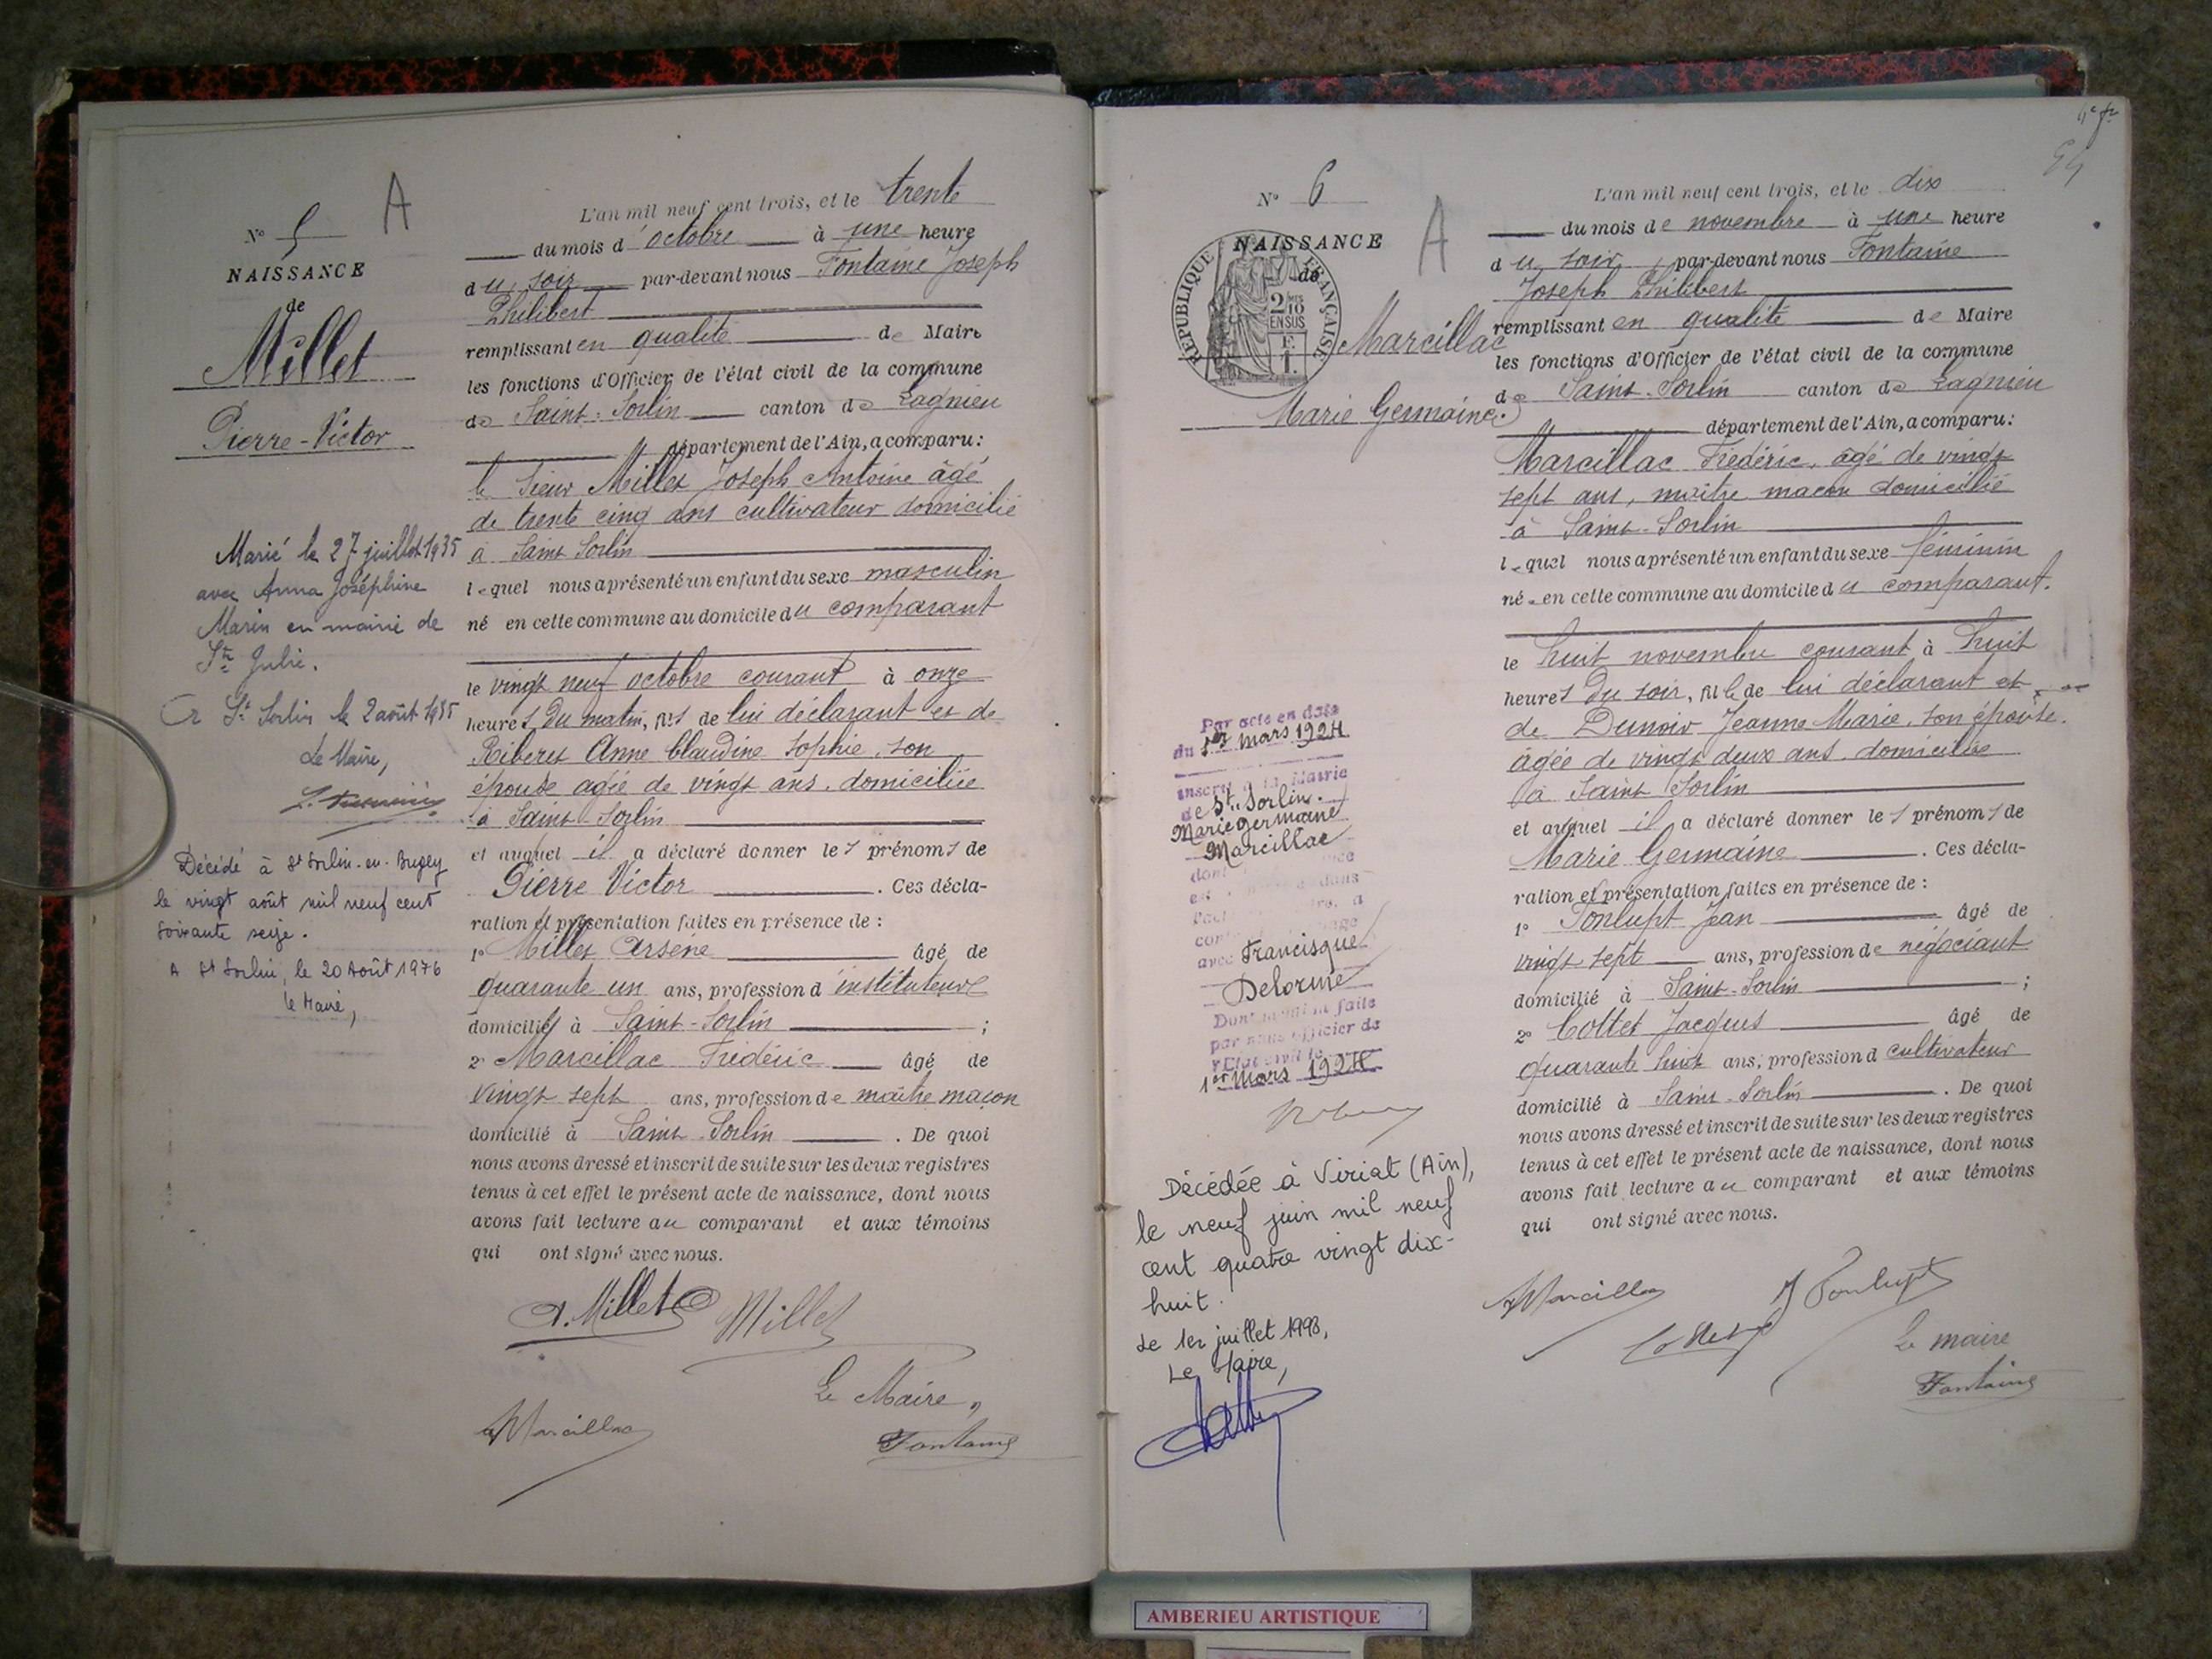 A
N° 5
NAISSANCE
de
Millet
Pierre-Victor
Marié le 27 juillet 1935
avec Anna Joséphine
Marin en mairie de
Ste Julie.
St Sorlin le 2 août 1935
Le Maire,
Décédé à St Sorlin-en-Bugey
le vingt août mil neuf cent
soixante seize.
A St Sorlin, le 20 Août 1976
le Maire,
L'an mil neuf cent trois, et le trente
du mois d'octobre à une heure
du soir par-devant nous Fontaine Joseph
Philibert
remplissant en qualité de Maire
les fonctions d'Officier de l'état civil de la commune
de Saint-Sorlin canton de Lagnieu
département de l'Ain, a comparu:
le sieur Millet Joseph Antoine âgé
de trente cinq ans cultivateur domicilié
à Saint Sorlin
lequel nous a présenté un enfant du sexe masculin
né en cette commune au domicile du comparant
le vingt neuf octobre courant à onze
heures du matin, fils de lui déclarant et de
Riberet Anne Claudine Sophie, son
épouse agée de vingt ans, domiciliée
à Saint-Sorlin
et auquel il a déclaré donner les prénoms de
Pierre Victor . Ces décla-
ration et présentation faites en présence de :
1° Millet Arsène âgé de
quarante un ans, profession d'instituteur
domicilié à Saint-Sorlin ;
2° Marcillac Frédéric âgé de
vingt sept ans, profession de maître maçon
domicilié à Saint-Sorlin . De quoi
nous avons dressé et inscrit de suite sur les deux registres
tenus à cet effet le présent acte de naissance, dont nous
avons fait lecture au comparant et aux témoins
qui ont signé avec nous.
A. Millet Millet
Le Maire,
Marcillac Fontaine
N° 6
A
NAISSANCE
de
RÉPUBLIQUE FRANÇAISE
2/10
EN SUS
F.
1.
Marcillac
Marie Germaine.
Par acte en date
du 1er mars 1924
inscrit à la Mairie
de St. Sorlin.
Marie germaine
Marcillac
dont
avec Francisque
Delorme
Dont mention faite
par nous officier de
l'Etat civil le
1er Mars 1924
Décédée à Viriat (Ain),
le neuf juin mil neuf
cent quatre vingt dix-
huit.
Le 1er juillet 1998,
Le Maire,
L'an mil neuf cent trois, et le dix
du mois de novembre à une heure
du soir, par-devant nous Fontaine
Joseph Philibert
remplissant en qualité de Maire
les fonctions d'Officier de l'état civil de la commune
de Saint-Sorlin canton de Lagnieu
département de l'Ain, a comparu:
Marcillac Frédéric, âgé de vingt
sept ans, maître macon domicilié
à Saint-Sorlin
lequel nous a présenté un enfant du sexe féminin
née en cette commune au domicile du comparant.
le huit novembre courant à huit
heures du soir, fille de lui déclarant et
de Dunoir Jeanne Marie, son épouse.
âgée de vingt deux ans, domiciliée
à Saint Sorlin
et auquel il a déclaré donner les prénoms de
Marie Germaine . Ces décla-
ration et présentation faites en présence de :
1° Ponlupt Jean âgé de
vingt sept ans, profession de négociant
domicilié à Saint-Sorlin ;
2° Cottet Jacques âgé de
quarante huit ans, profession d cultivateur
domicilié à Saint-Sorlin . De quoi
nous avons dressé et inscrit de suite sur les deux registres
tenus à cet effet le présent acte de naissance, dont nous
avons fait lecture au comparant et aux témoins
qui ont signé avec nous.
Marcillac J Ponlupt
Cottet
Le maire
Fontaine
AMBERIEU ARTISTIQUE